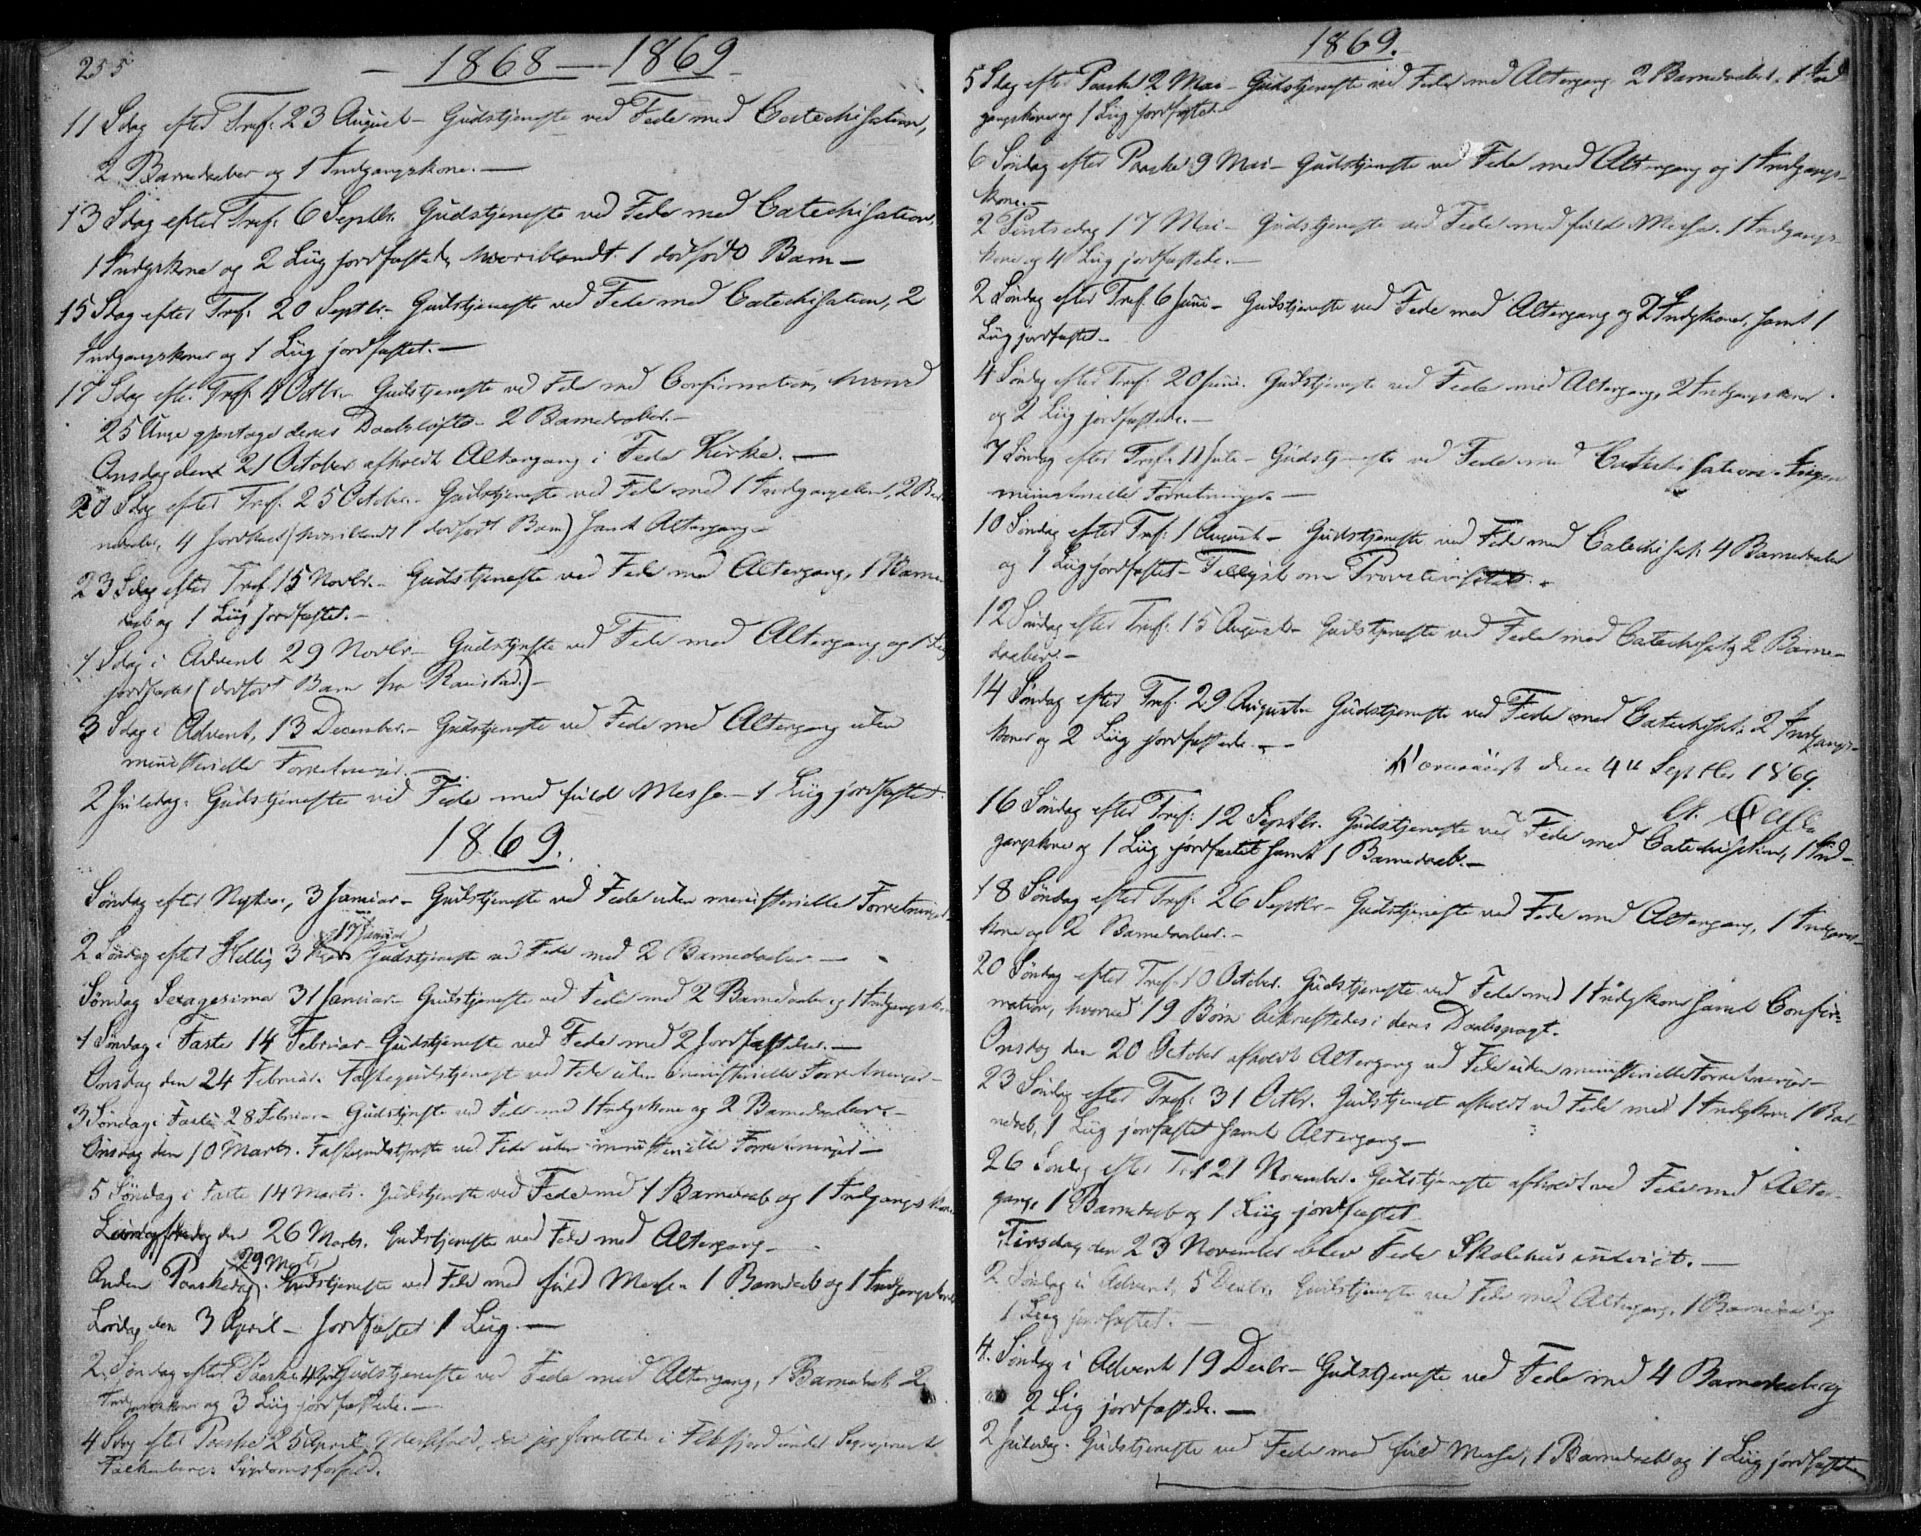 255
1868 — 1869
11 Sdag efter Tref. 23 August – Gudstjeneste ved Fede med Catechisation,
2 Barnedaaber og 1 Indgangskone. —
13 Sdag efter Tref. 6 Septbr. Gudstjeneste ved Fede med Catechisation,
1 Indgskone og 2 Liig jordfæstede, hvoriblandt 1 dødfødt Barn —
15 Sdag efter Tref. 20 Septbr. Gudstjeneste ved Fede med Catechisation, 2
Indgangskoner og 1 Liig jordfæstet. —
17 Sdag efter Tref. 4 Octbr. Gudstjeneste ved Fede med Confirmation, hvorved
25 Unge gjentoge deres Daabsløfte – 2 Barnedaaber. –
Onsdag den 21 October afholdt Altergang i Fede Kirke. —
20 Sdag efter Tref. 25 Octobr. Gudstjeneste ved Fede med 1 Indgangskone, 2 Bar-
nedaaber, 4 Jordfæst. (hvoriblandt 1 dødfødt Barn) samt Altergang –
23 Sdag efter Tref. 15 Novbr. – Gudstjeneste ved Fede med Altergang, 1 Barne-
daab og 1 Liig jordfæstet. –
1 Sdag i Advent 29 Novbr. – Gudstjeneste ved Fede med Altergang og 1 Liig
jordfæstet (dødfødt Barn fra ) –
3 Sdag i Advent, 13 December. – Gudstjeneste ved Fede med Altergang uden
ministerielle Forretninger. —
2 Juledag. Gudstjeneste ved Fede med fuld Messe. – 1 Liig jordfæstet.
1869.
Søndag efter Nytaar, 3 Januar – Gudstjeneste ved Fede uden ministerielle Forretninger
17 Januar
2 Søndag efter Hellig 3 Gudstjeneste ved Fede med 2 Barnedaaber —
Søndag Sexagesima 31 Januar – Gudstjeneste ved Fede med 2 Barnedaaber og 1 Indgangskone
1 Søndag i Faste 14 Februar – Gudstjeneste ved Fede med 2 Jordfæstelser. —
Onsdag den 24 Februar. Fastegudstjeneste ved Fede uden ministerielle Forretninger –
3 Søndag i Faste 28 Februar – Gudstjeneste ved Fede med 1 Indgskone og 2 Barnedaaber. –
Onsdag den 10 Marts. Fastegudstjeneste ved Fede uden ministerielle Forretninger –
5 Søndag i Faste 14 Marts. Gudstjeneste ved Fede med 1 Barnedaab og 1 Indgangskone
Langfredag den 26 Marts. Gudstjeneste ved Fede med Altergang –
29 Marts
Anden Paaskedag. Gudstjeneste ved Fede med fuld Messe 1 Barnedaab og 1 Indgangskone
Lørdag den 3 April – Jordfæstet 1 Liig. —
2. Søndag efter Paaske Gudstjeneste ved Fede med Altergang, 1 Barnedaab 2
Indgangskoner og 3 Liig jordfæstede. —
4 Sdag efter Paaske 25 April Messefald, da jeg forrettede i under Sogneprest
Falkenbergs Sygdomsforfald.
1869.
5 Sdag efter Paaske 2 Mai – Gudstjeneste ved Fede med Altergang 2 Barnedaaber, 1 Ind-
gangskone og 1 Liig jordfæstet –
6 Søndag efter Paaske 9 Mai – Gudstjeneste ved Fede med Altergang og 1 Indgangs-
kone. –
2 Pintsedag 17 Mai – Gudstjeneste ved Fede med fuld Messe. 1 Indgangs-
kone og 4 Liig jordfæstede. —
2 Søndag efter Tref. 6 Juni – Gudstjeneste ved Fede med Altergang og 2 Indgkoner, samt 1
Liig jordfæstet –
4 Søndag efter Tref. 20 Juni. Gudstjeneste ved Fede med Altergang, 2 Indgangskoner
og 2 Liig jordfæstede. —
7 Søndag efter Tref. 11 Juli – Gudstjeneste ved Fede med Catechisation. Ingen
ministerielle Forretninger —
10 Søndag efter Tref. 1 August – Gudstjeneste ved Fede med Catechisat. 4 Barnedaaber
og 1 Liig jordfæstet – Tillyst om Provstevisitats. –
12 Søndag efter Tref. 15 August – Gudstjeneste ved Fede med Catechisat. 2 Barne-
daaber. –
14 Søndag efter Tref. 29 August – Gudstjeneste ved Fede med Catechisat. 2 Indgangs-
koner og 2 Liig jordfæstede. –
den 4de Septbr 1869.
16 Søndag efter Tref. 12 Septbr. Gudstjeneste ved Fede med Catechisation, 1 Ind-
gangskone og 1 Liig jordfæstet samt 1 Barnedaab. –
18 Søndag efter Tref. 26 Septbr – Gudstjeneste ved Fede med Altergang, 1 Indgangs-
kone og 2 Barnedaaber. –
20 Søndag efter Tref. 10 October. Gudstjeneste ved Fede med 1 Indgskone samt Confir-
mation, hvorved 19 Børn bekræftedes i deres Daabspagt.
Onsdag den 20 October afholdt Altergang ved Fede uden ministerielle Forretninger –
23 Søndag efter Tref. 31 Octbr. Gudstjeneste afholdt ved Fede med 1 Indgkone 1 Bar-
nedaab, 1 Liig jordfæstet samt Altergang –
26 Søndag efter Tref 21 November. Gudstjeneste afholdt ved Fede med Alter-
gang, 1 Barnedaab og 1 Liig jordfæstet
Tirsdag den 23 November blev Fede Skolehus indviet. —
2 Søndag i Advent, 5 Decbr. Gudstjeneste ved Fede med Altergang, 1 Barnedaab og
1 Liig jordfæstet. —
4. Søndag i Advent 19 Decbr – Gudstjeneste ved Fede med 4 Barnedaab og
2 Lig jordfæstede. —
2 Juledag. Gudstjeneste ved Fede med fuld Messe, 1 Barnedaab og 1 Liig jordfæstet